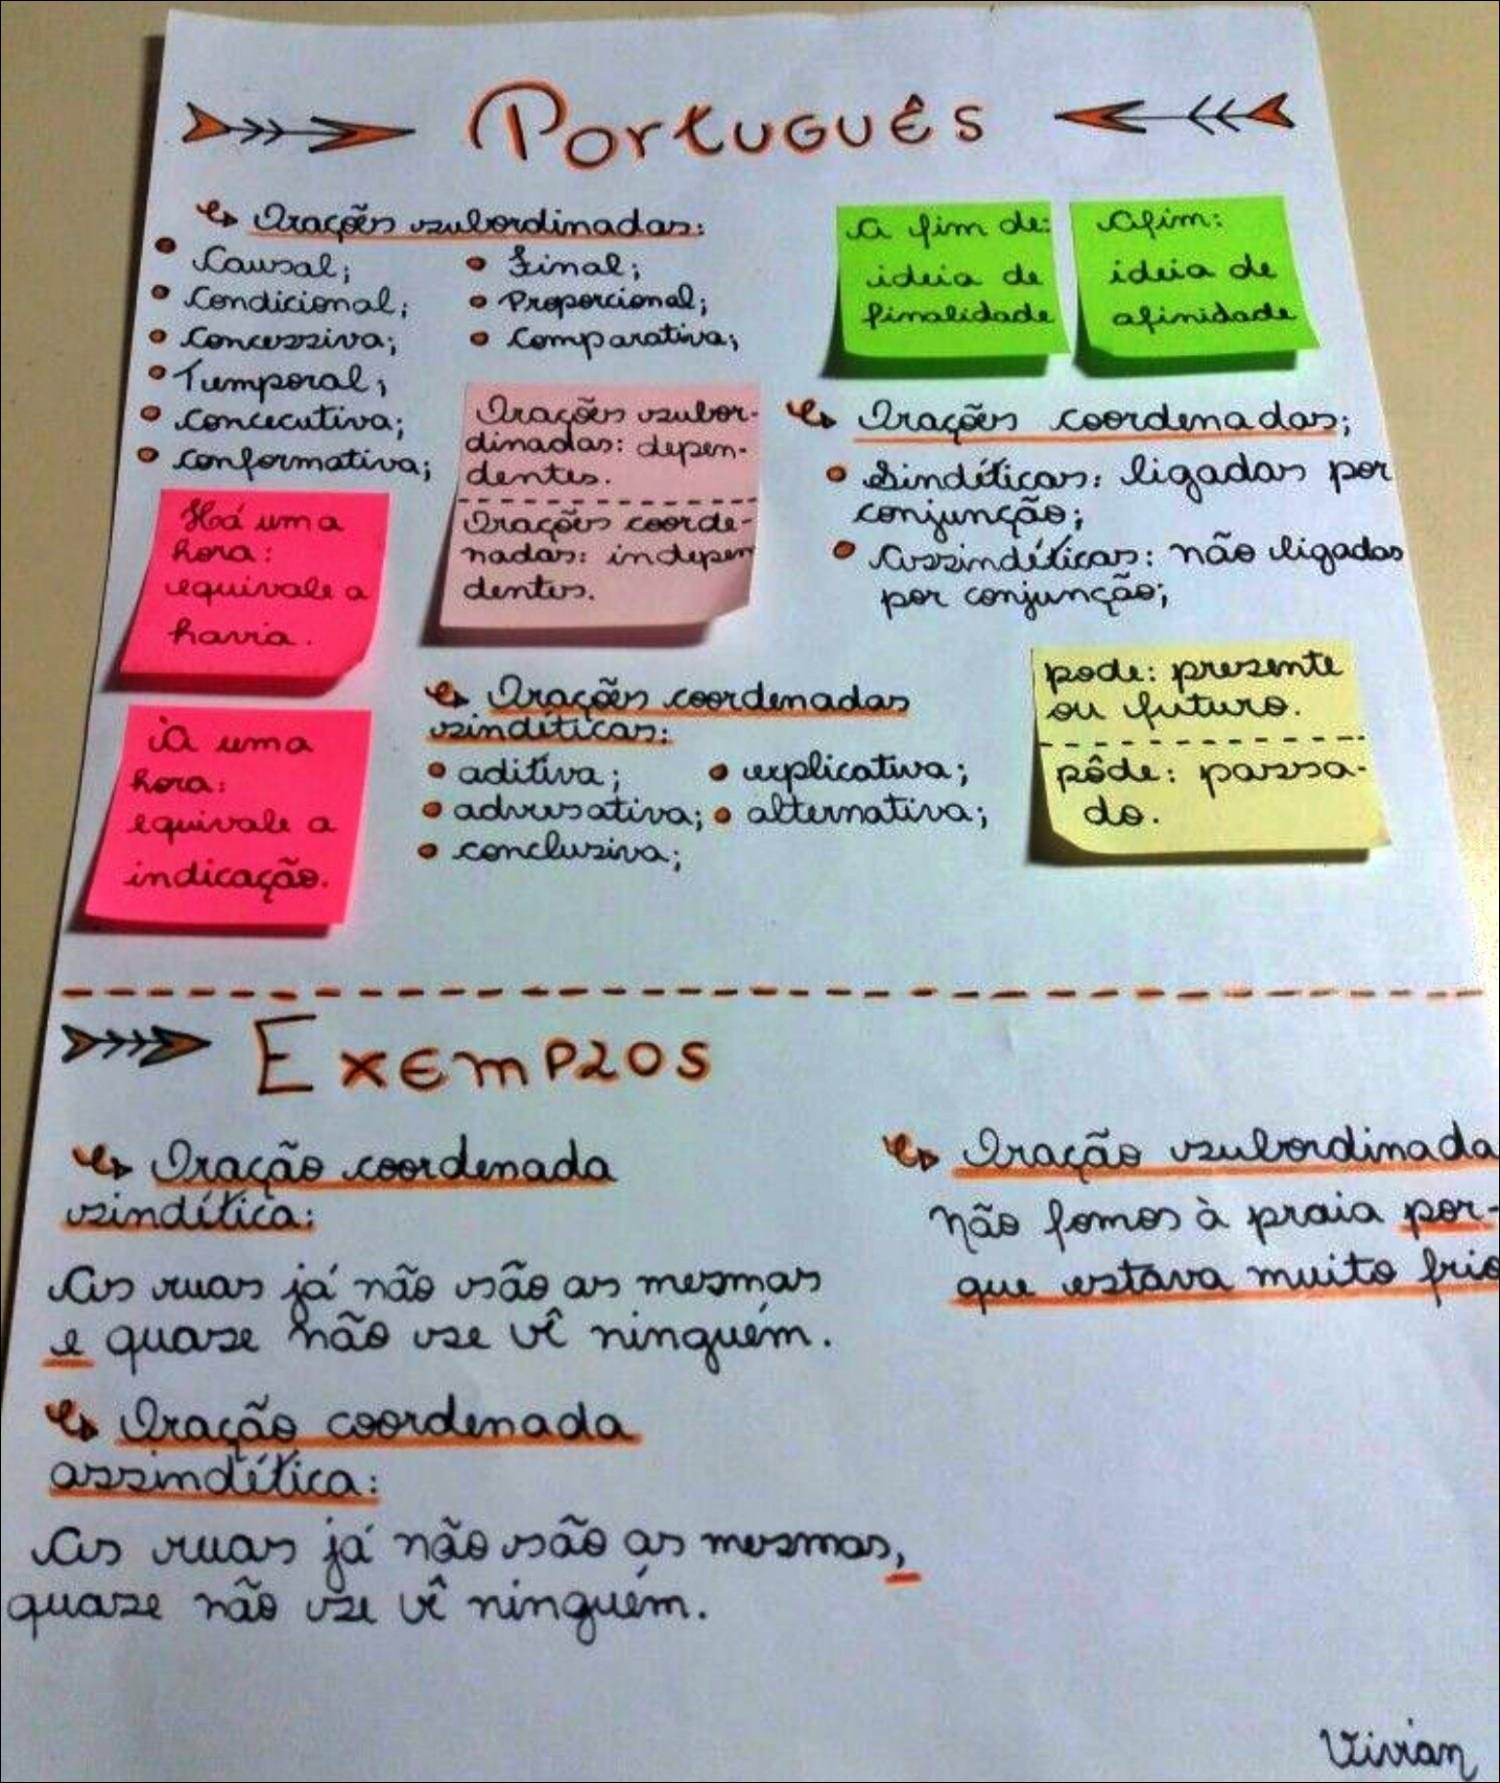 Português
Orações subordinadas:
Causal;
Condicional;
Concessiva;
Temporal;
Concecutiva;
conformativa;
Final;
Proporcional;
Comparativa;
A fim de:
ideia de
finalidade
Afim:
ideia de
afinidade
Orações subor-
dinadas: depen-
dentes.
Orações coorde-
nadas: indepen
dentes.
Orações coordenadas;
Sindéticas: ligadas por
conjunção;
Assindéticas: não ligadas
por conjunção;
Há uma
hora:
equivale a
havia.
À uma
hora:
equivale a
indicação.
Orações coordenadas
sindéticas:
aditiva;
adversativa;
conclusiva;
explicativa;
alternativa;
pode: presente
ou futuro.
pôde: passa-
do.
Exemplos
Oração coordenada
sindética:
As ruas já não são as mesmas
e quase não se vê ninguém.
Oração coordenada
assindética:
As ruas já não são as mesmas,
quase não se vê ninguém.
Oração subordinada
não fomos à praia por-
que estava muito frio
Vivian